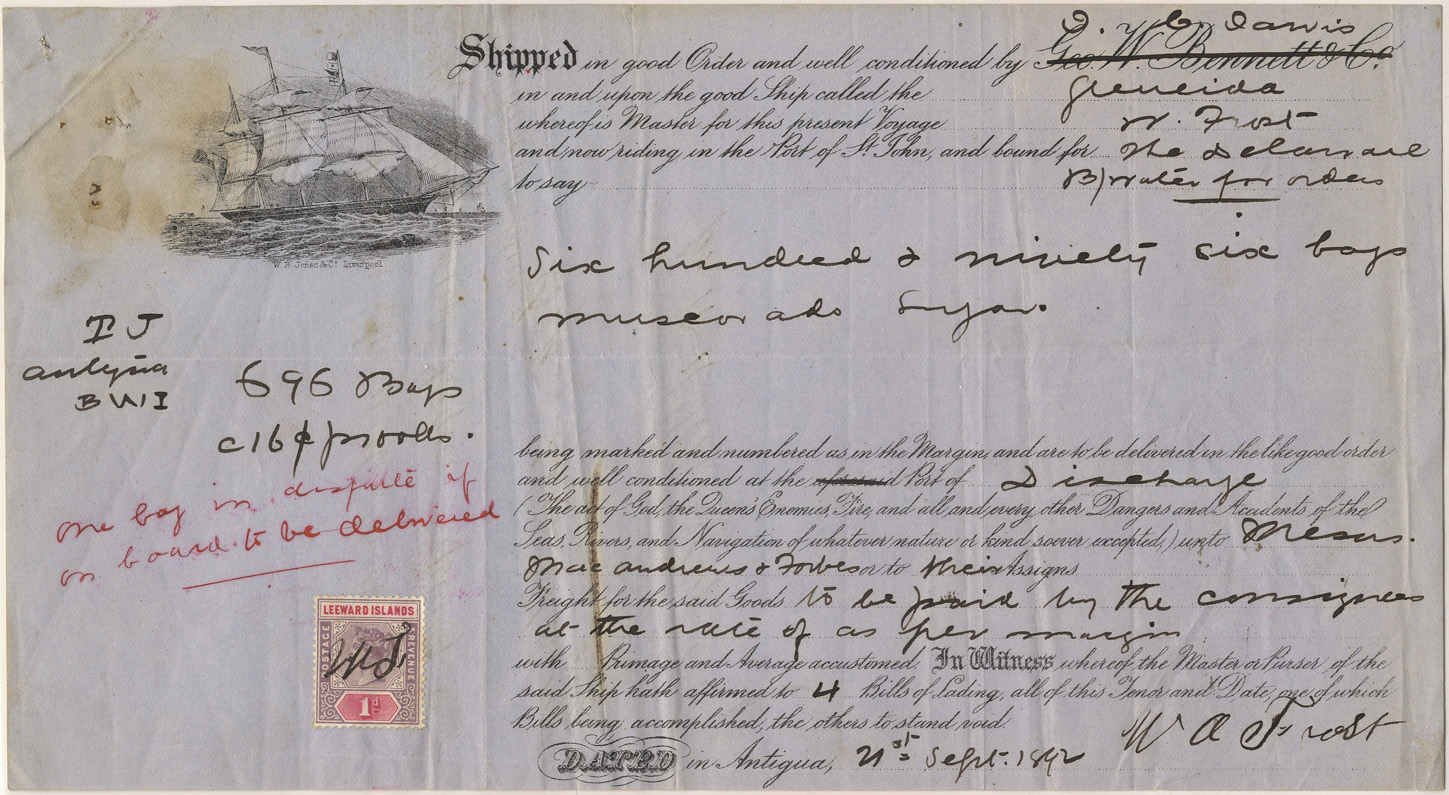 Shipped in good Order and well conditioned by Geo. W. Bennett & Co. J. C. Jarvis
in and upon the good Ship called the Gleneida
whereof is Master for this present Voyage W. Frost
and now riding in the Port of St. John, and bound for The Delaware
to say B/water for orders
W. B. Jones & Co. Liverpool
Six hundred & ninety six bags
muscovado Sugar.
I J
Antigua
B W I
696 Bags
c16¢ p 100 lbs.
one bag in dispute if
on board to be delivered
being marked and numbered as in the Margin, and are to be delivered in the like good order
and well conditioned at the aforesaid Port of Discharge
(The act of God, the Queen's Enemies, Fire, and all and every other Dangers and Accidents of the
Seas, Rivers, and Navigation of whatever nature or kind soever excepted,) unto Messrs.
Mac andrews & Forbes or to their Assigns
Freight for the said Goods to be paid by the consignees
at the rate of as per margin
with Primage and Average accustomed. In Witness whereof the Master or Purser of the
said Ship hath affirmed to 4 Bills of Lading, all of this Tenor and Date, one of which
Bills being accomplished, the others to stand void.
W A Frost
DATED in Antigua, 21st Sept. 1892
LEEWARD ISLANDS
POSTAGE
REVENUE
1d